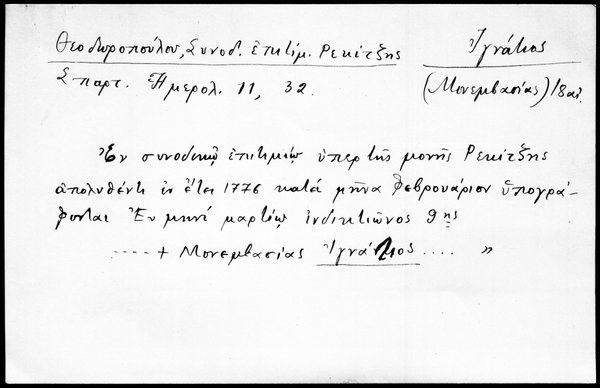 Θεοδωροπούλου, Συνοδ. ἐπιτίμ. Ρεκίτζης
Ἰγνάτιος
Σπαρτ. Ἡμερολ. 11, 32.
(Μονεμβασίας) 18 αἰ.
Ἐν συνοδικῷ ἐπιτιμίῳ ὑπὲρ τῆς μονῆς Ρεκίτζης
ἀπολυθέντι ἐν ἔτει 1776 κατά μῆνα Φεβρουάριον ὑπογρά-
φονται Ἐν μηνί μαρτίῳ ἰνδικτιῶνος 9ης
..... + Μονεμβασίας Ἰγνάτιος .... »